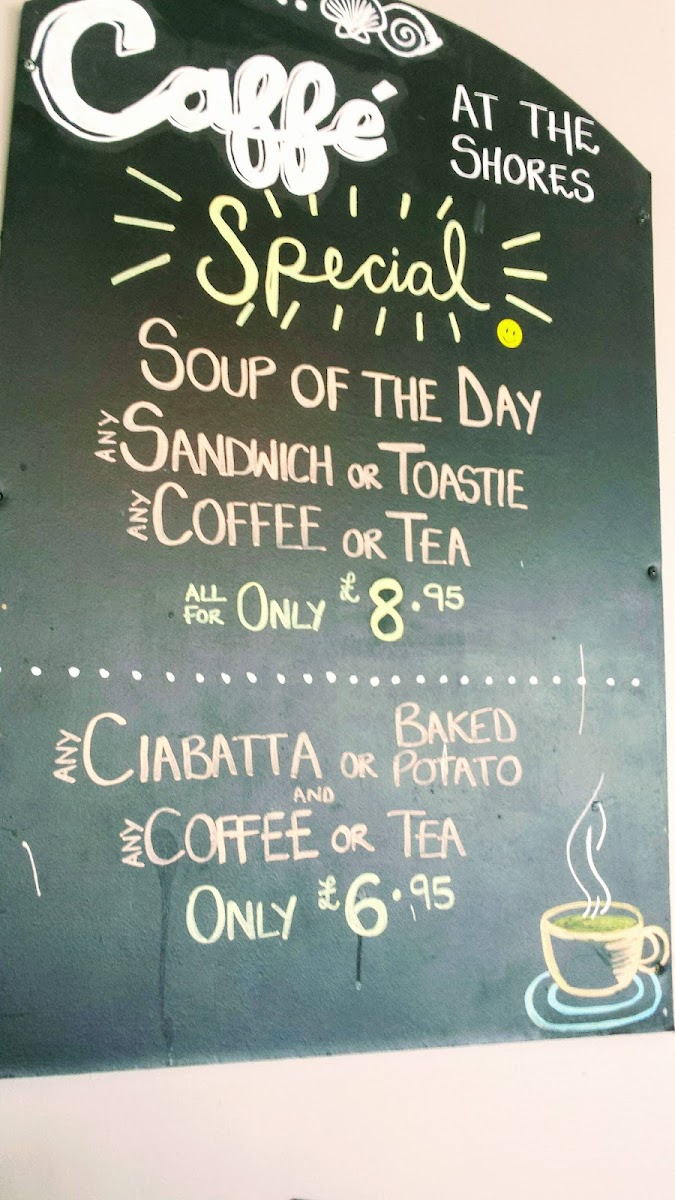 Caffé
AT THE
SHORES
Special
SOUP OF THE DAY
ANY SANDWICH OR TOASTIE
ANY COFFEE OR TEA
ALL FOR ONLY £8.95
ANY CIABATTA OR BAKED POTATO
AND
ANY COFFEE OR TEA
ONLY £6.95